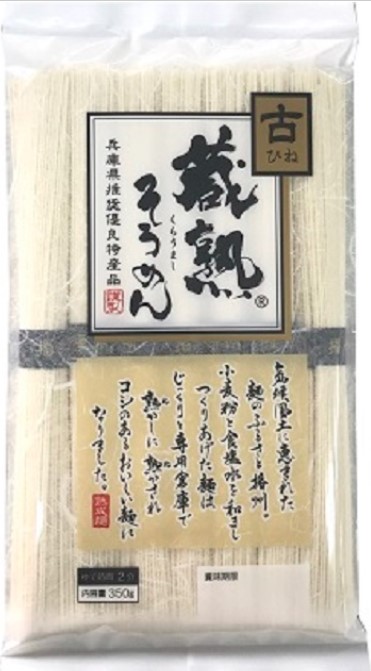 古
ひね
蔵熟®
くらうまし
そうめん
兵庫県推奨優良特産品
気候風土に恵まれた
麺のふるさと播州。
小麦粉と食塩水を和まし
つくりあげた麺は
じっくりと専用倉庫で
熟かしに熟かされ
コシのあるおいしい麺に
なりました。
熟成麺
ゆで時間 2分
内容量 350g
賞味期限